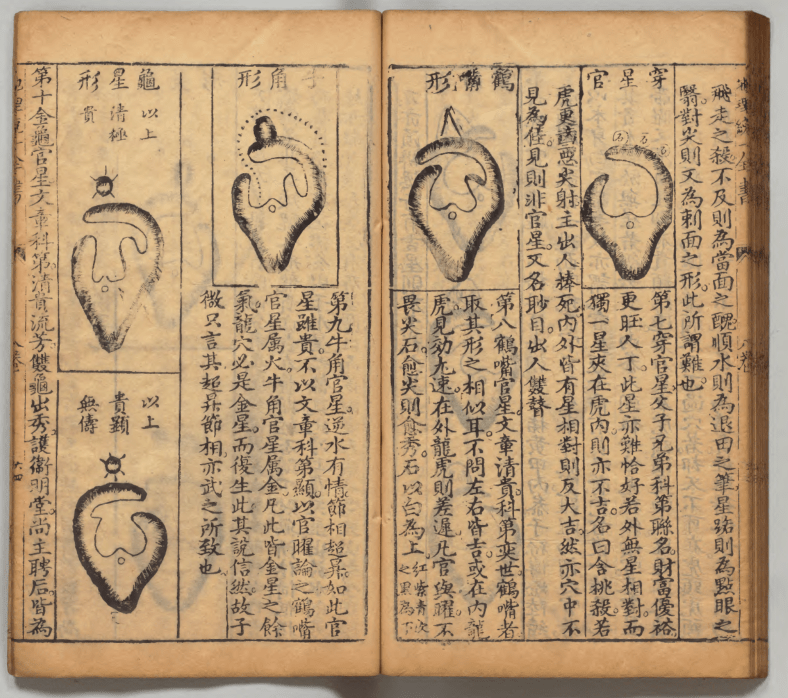 飛走之殺不及則為當面之醜順水則為退田之筆星路則為點眼之
翳對尖則又為刺面之形此所謂難也
穿星官
第七穿官星父子兄弟科第聯名財富優裕
更旺人丁此星亦難恰好若外無星相對而
獨一星夾在虎內則亦不吉名曰含桃殺若
虎更舊惡尖射主出人棒死內外皆有星相對則反大吉然亦穴中不
見為佳見則非官星又名眇目出人雙瞽
鶴嘴形
第八鶴嘴官星文章清貴科第奕世鶴嘴者
取其形之相似耳不問左右皆吉或在內龍
虎見効九速在外龍虎則差遲凡官與曜不
畏尖石愈尖則愈秀石以白為上紅紫青次之黑為下
牛角形
第九牛角官星逆水有情節相超昇如此官
星雖貴不以文章科第顯以官曜論之鶴嘴
官星属火牛角官星属金凡此皆金星之餘
氣龍穴必是金星而復生此其說信然故子
微只言其超昇節相亦武之所致也
龜星形
以上清極貴
以上貴顯無儔
第十金龜官星文章科第清貴流芳雙龜出秀護衛明堂尚主聘后皆為